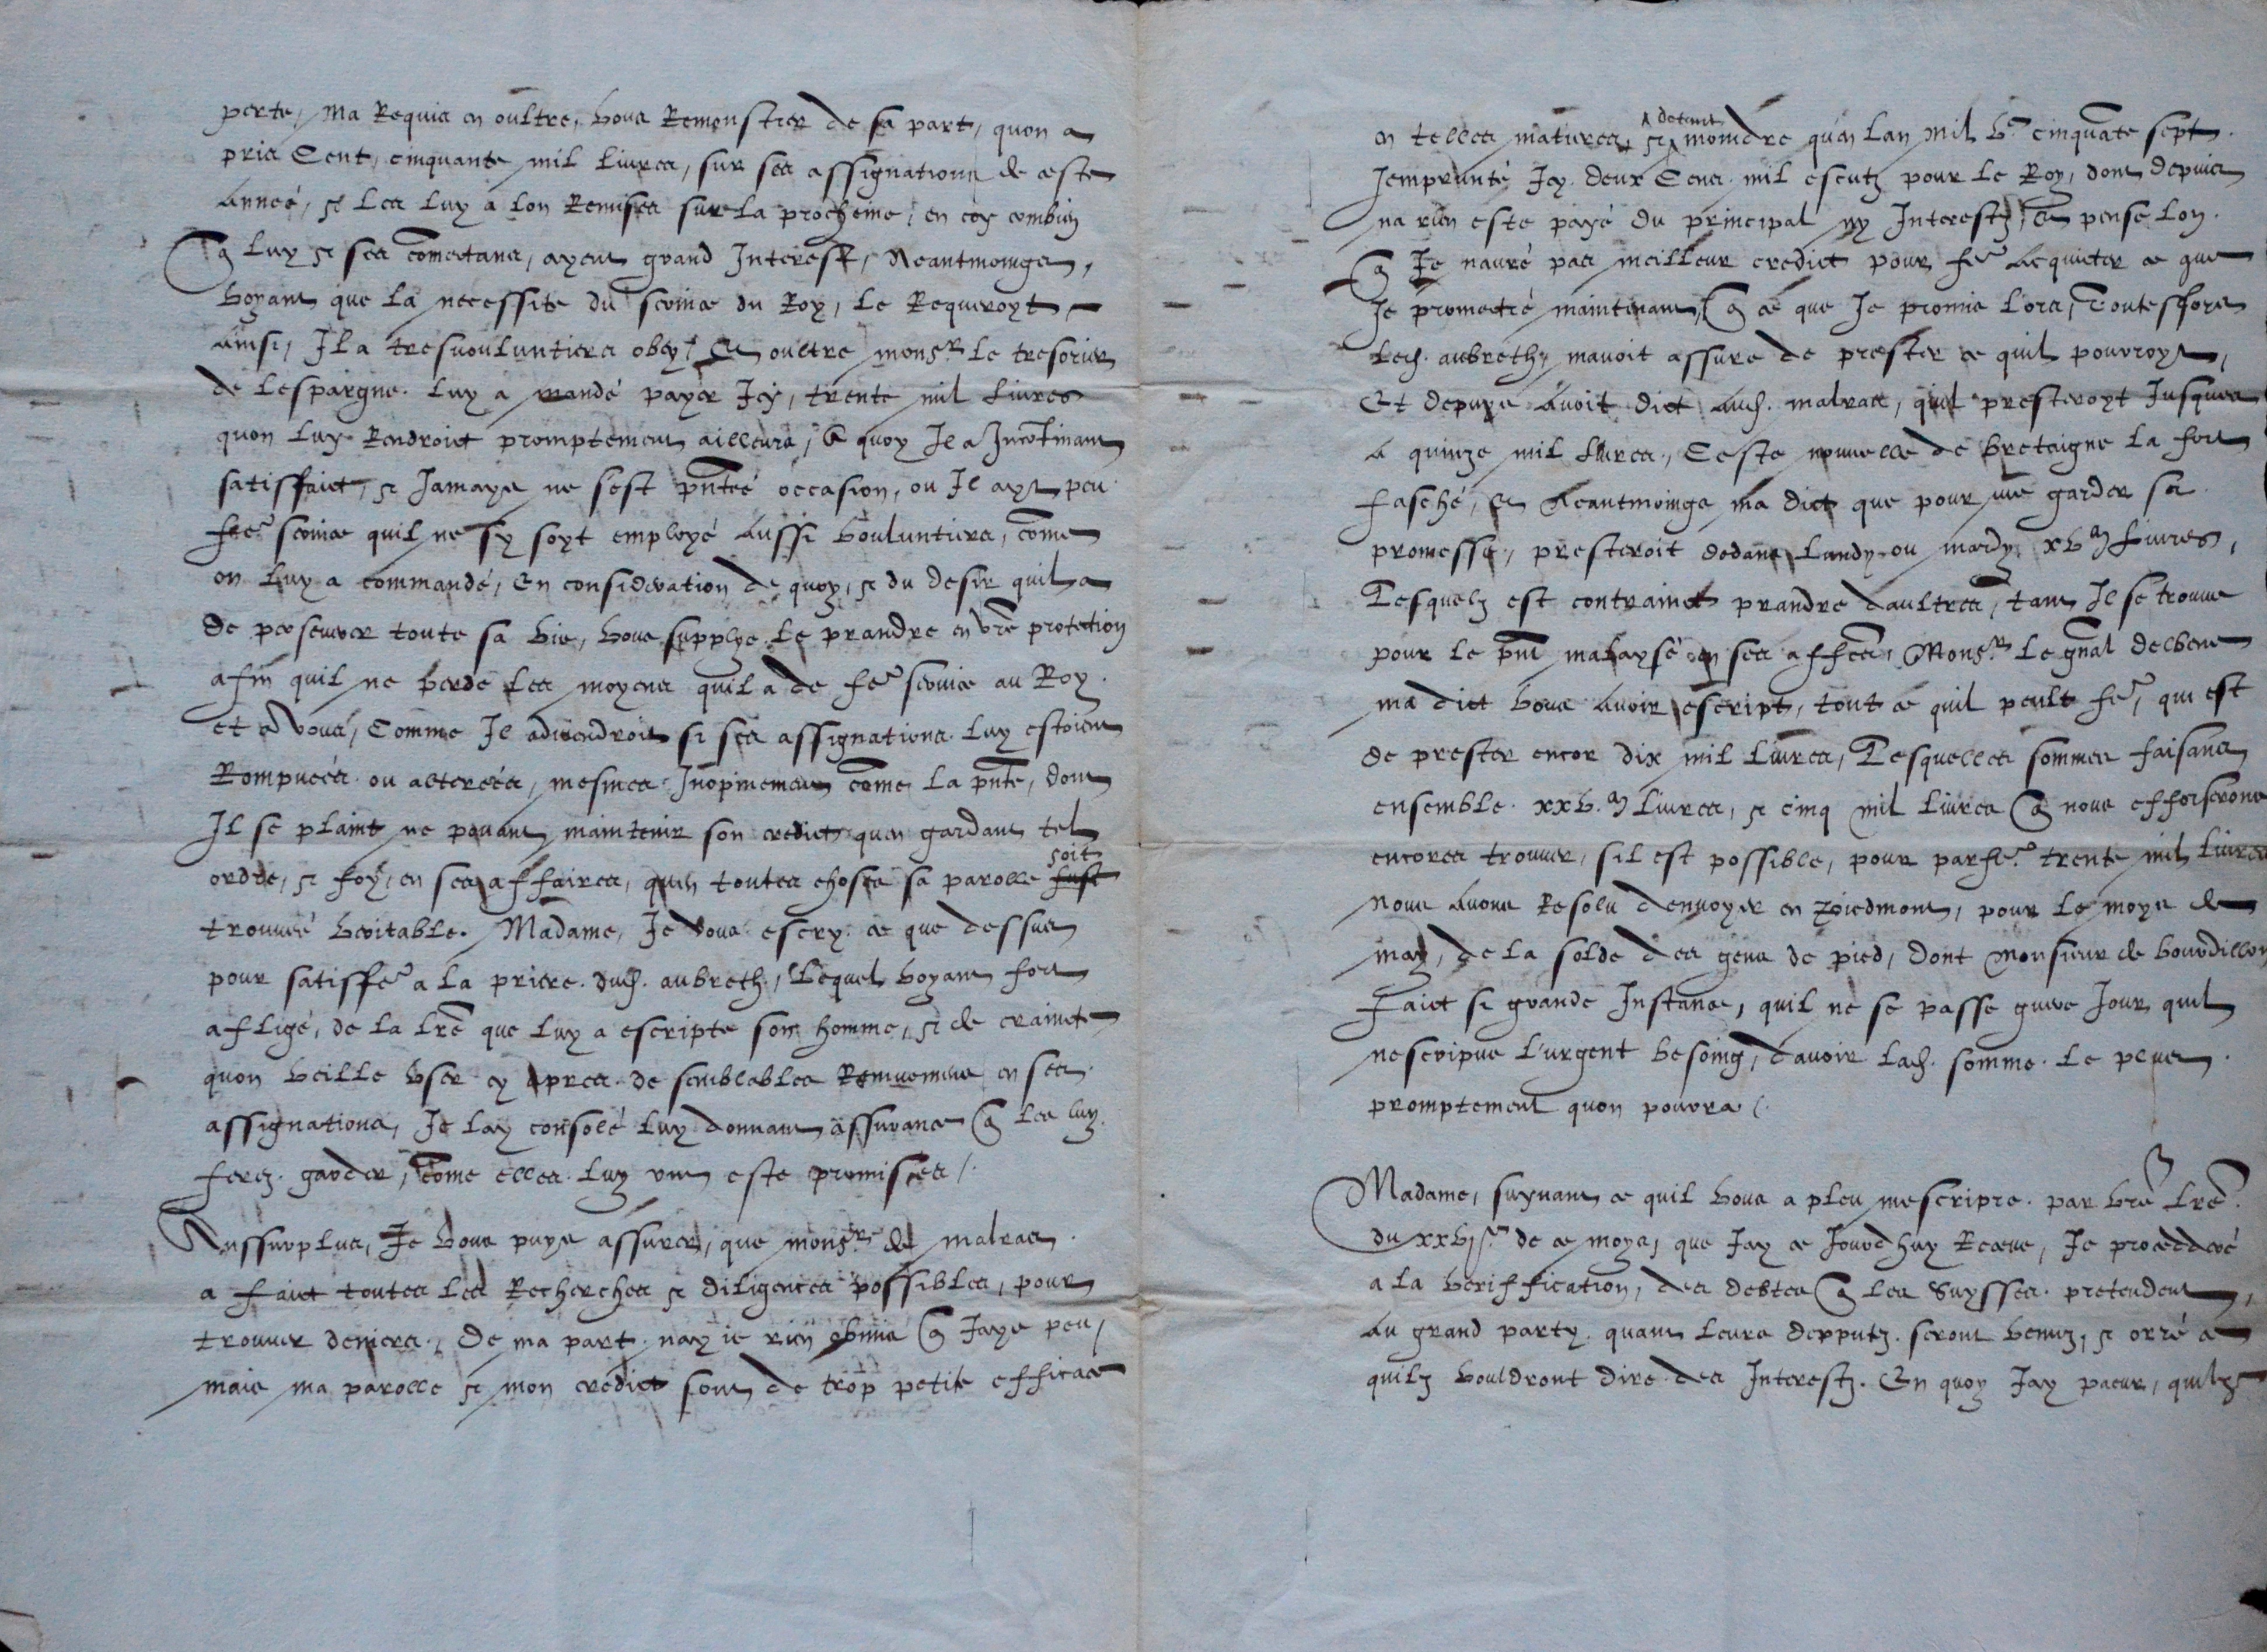 perte, Ma Requis en oultre, vous Remonstrer de sa part, quon a
pris Cent, cinquante mil livres, sur ses assignations de ceste
Année, & Les luy a lon Remises sur La procheine, en coy combien
q̃ luy & ses cõmectans, ayent grand Interest, Neantmoings,
voyant que La necessite du service du Roy, Le Requeroyt
Ainsi, Il a tresvouluntiers obey, Et oultre mons.r Le tresorier
de Lespargne. Luy a mandé payer Icy, trente mil Livres
quon Luy Rendroict promptement ailleurs, A quoy Il a Incõtinant
satisfaict, & Jamays ne sest pñtée occasion, ou Il ayt peu
fẽ service quil ne sy soyt employé Aussi vouluntiers, cõme
on Luy a commandé, En consideration de quoy, & du desir quil a
de perseverer toute sa vie, vous supplye Le prandre en vr̃e protection
afin quil ne perde Les moyens quil a de fẽ service au Roy
et a vous, Comme Il adviendroit si ses assignations Luy estoient
Rompuees ou alterées, mesmes Inopinement cõme La pñte, dont
Il se plaint ne povant maintenir son credict quen gardant tel
soit
ordre, & foy, en ses affaires, quen toutes choses sa parolle fust
trouvée veritable. Madame, Je vous escry ce que dessus
pour satisfẽ a la priere dud. aubreth, Lequel voyant fort
afligé, de la lr̃e que Luy a escripte son homme, & de craincte
quon veille user cy apres de semblables Remuemens en ses
assignations, Je Lay consolé Luy donnant assurance q̃ Les luy
ferez garder, cõme elles Luy ont este promises /.
Aussurplus, Je vous puys assurer, que mons.r de malras
a faict toutes Les Recherches & diligences possibles, pour
trouver deniers, De ma part nay ie rien obmis q̃ Jaye peu,
mais ma parolle & mon credict sont de trop petite efficace
en telles matieres, &
moindre quen Lan Mil vc cinquante sept
Jemprunté Icy deux Cens mil escutz pour Le Roy, dont depuis
na rien este payé du principal ny Interestz, Et pense Lon
q̃ Je nauré pas meilleur credict pour fẽ Acquicter ce que
Je promectré maintenant, q̃ ce que Je promis Lors, Toutesfoys
Led. aubreth, mavoit assuré de prester ce quil pourroyt,
Et depuys Avoit dict Aud. malras, quil presteroyt Jusques
A quinze mil Livres, Ceste nouvelle de bretaigne La fort
fasché, Et Neantmoings ma dict que pour me garder sa
promesse, presteroit dedans Lundy ou mardy xvm Livres,
Lesquelz est contrainct prandre daultres, tant Il se trouve
pour Le pñt malaysé en ses affẽs, Mons.r Le gñal delbene
ma dict vous Avoir escript, tout ce quil peult fẽ, qui est
de prester encor dix mil Livres, Lesquelles sommes faisans
ensemble xxv.m Livres, & cinq mil Livres q̃ nous efforserons
encores trouver, sil est possible, pour parfẽ trente mil Livres
nous Avons Resolu denvoyer en piedmont, pour Le moys de
may, de la solde des gens de pied, dont Monsieur de bourdillon
Faict si grande Instance, quil ne se passe guere Jour quil
nescripve Lurgent besoing, davoir Lad. somme Le plus
promptement quon pourra /.
Madame, suyvant ce quil vous a pleu mescripre par vr̃e lr̃e
du xxvje de ce moys, que Jay ce Jourdhuy Receue, Je procedderé
a la veriffication, des debtes q̃ Les Suysses pretendent,
Au grand party quant Leurs depputz seront venuz, & orré ce
quilz vouldront dire des Interestz. En quoy Jay paeur, quilz